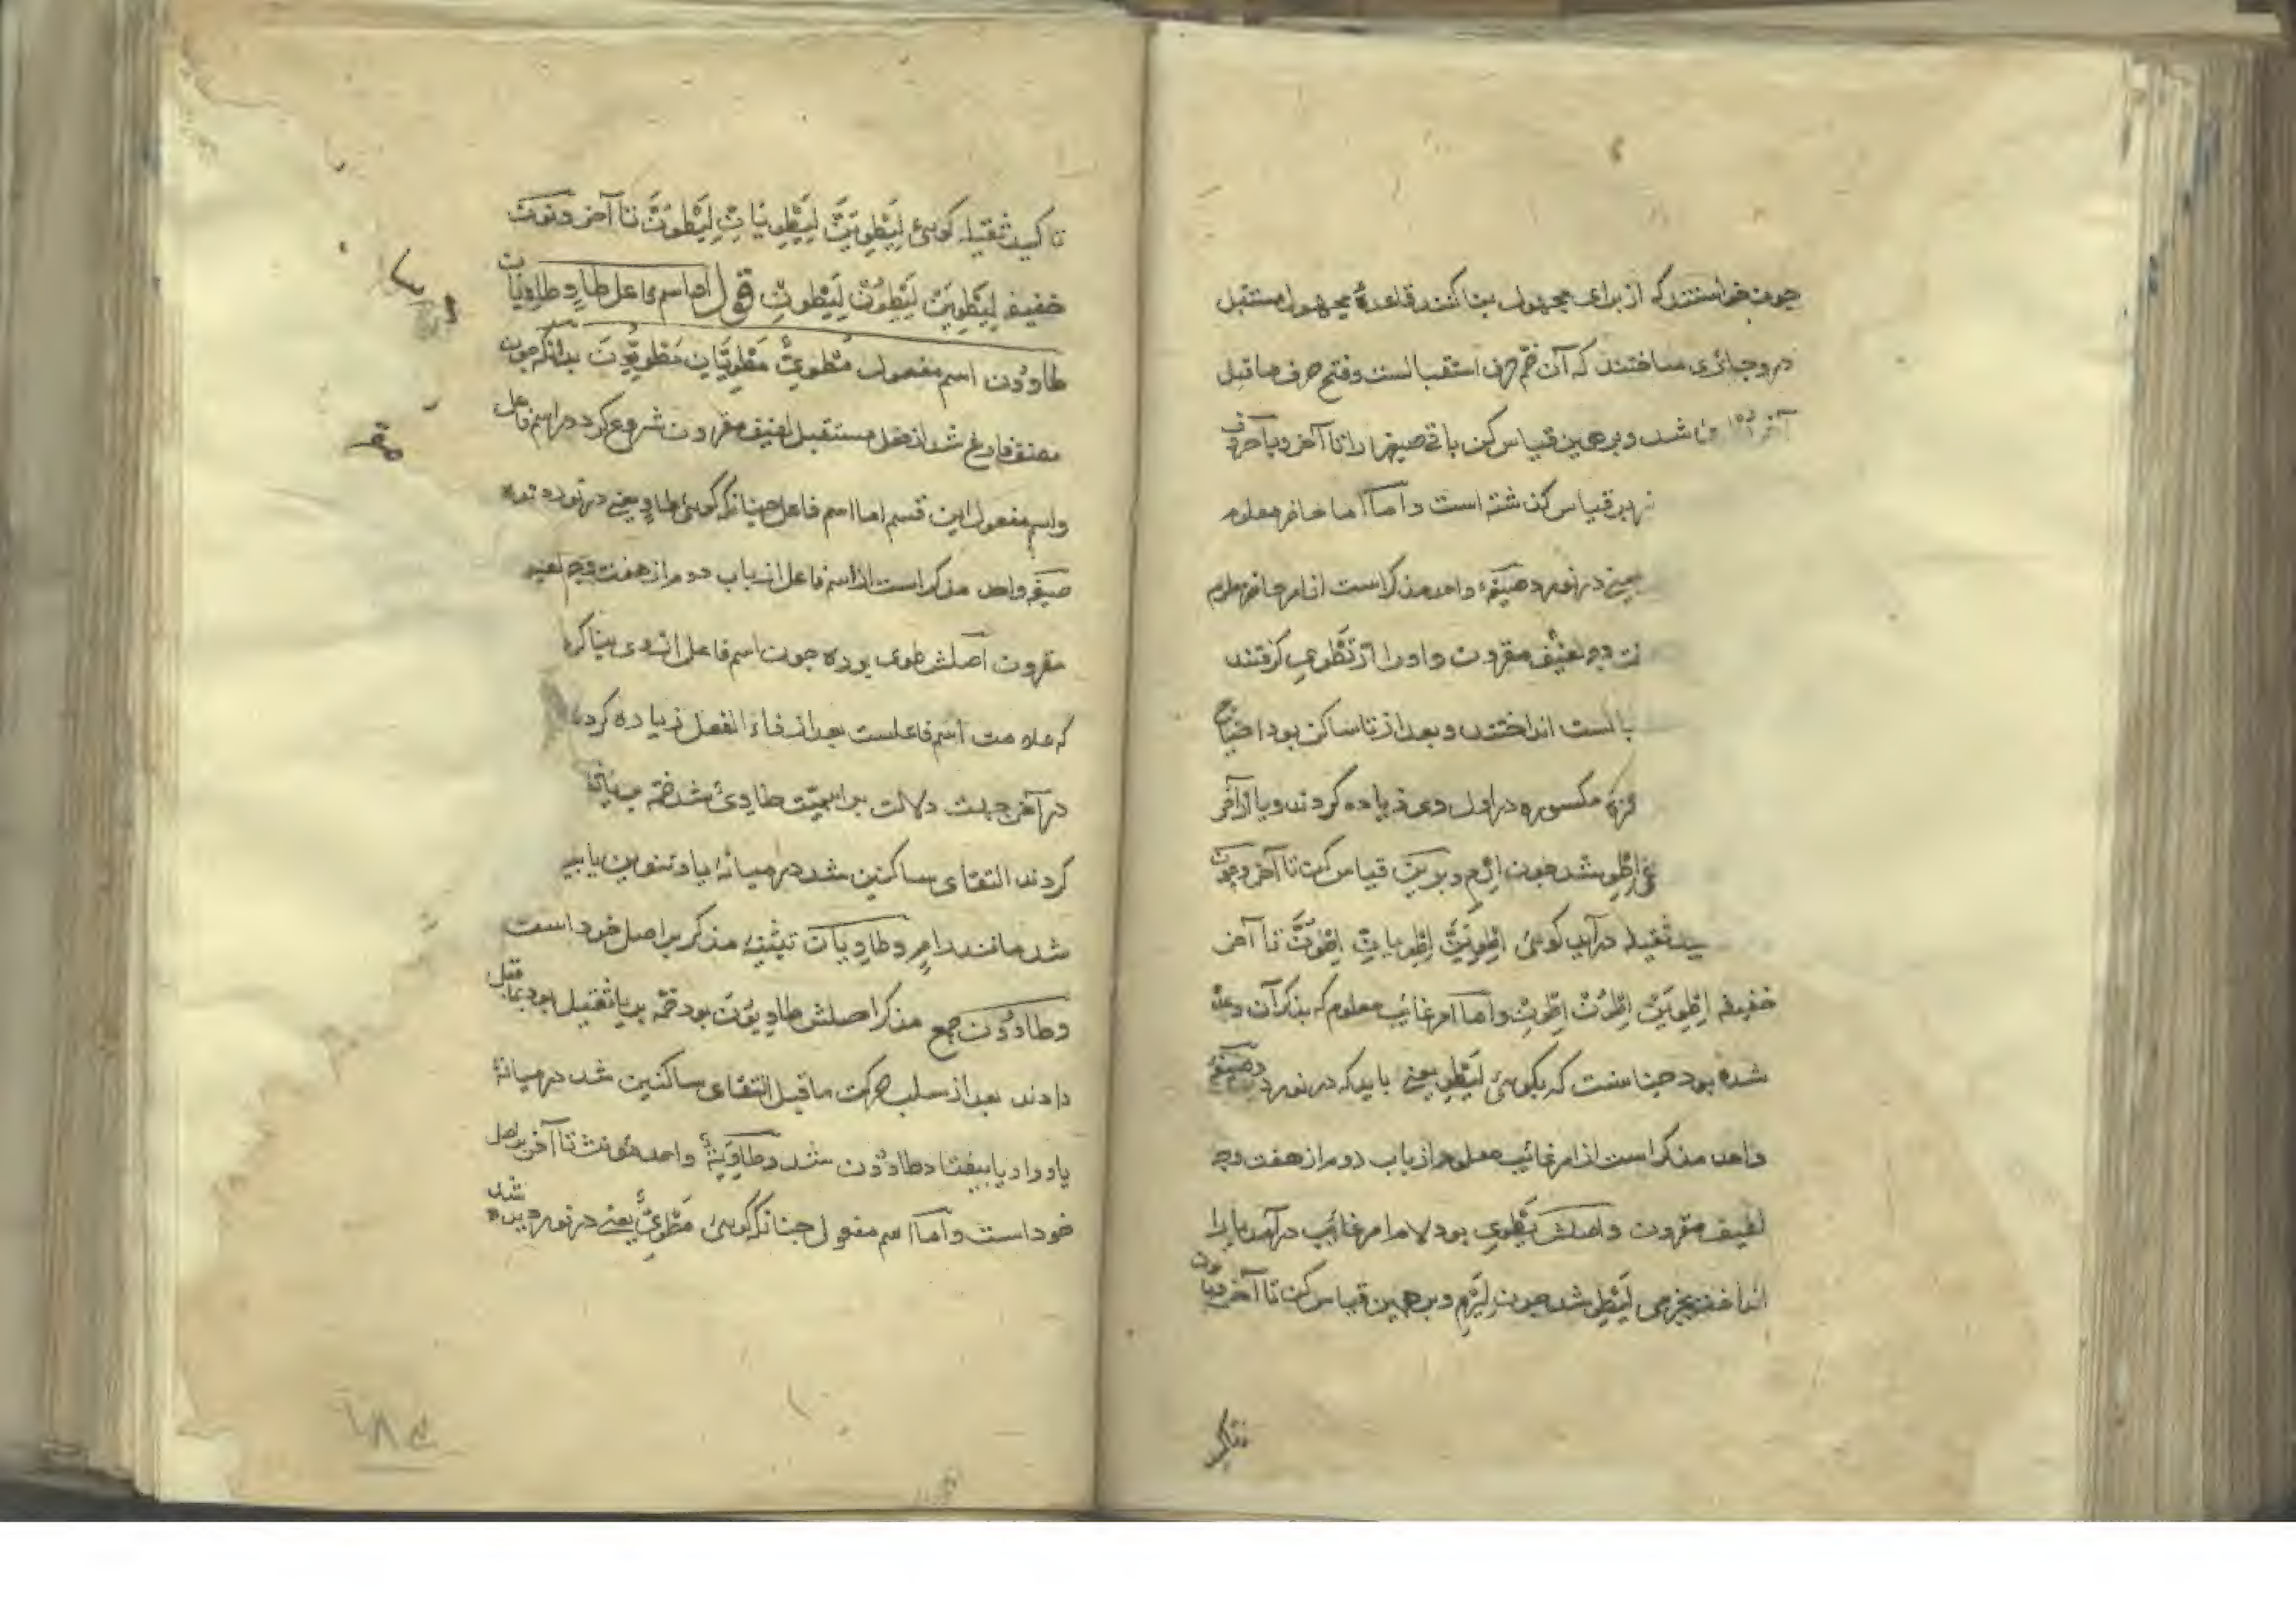 چون خواستند که از برای مجهول بنا کنند قاعدهٔ مجهول مستقبل
در و جاری ساختند که آن ضم حرف استقبالست و فتح حرف ماقبل
آخر شد و برهمین قیاس کن باقی صیغها را تا آخر و با حروف
قیاس گذشته است و امّا امر حاضر معلوم
یعنی در نورد صیغهٔ واحد مذکر است از امر حاضر معلوم
لفیف مقرون و او را از تَطْوِی گرفتند
بالست انداختند و بعد از تا ساکن بود احتیاج
همزهٔ مکسوره در اول وی زیاده کردند و یا از آخر
اِطْوِ شد چون اِرْمِ و برین قیاس کن تا آخر و چون
ثقیله درآید گوئی اِطْوِیَنَّ اِطْوِیانِّ اِطْوُنَّ تا آخر
خفیفه اِطْوِیَنْ اِطْوُنْ اِطْوِنْ و امّا امر غائب معلوم که بذکر آن وعده
شده بود چنانست که بگوئی لِیَطْوِ یعنی باید که در نورد صیغهٔ
واحد مذکر است از امر غائب معلوم از باب دوم از هفت وجه
لفیف مقرون و اصلش یَطْوِی بود لام امر غائب درآمد یا را
انداخت بجزمی لِیَطْوِ شد چون لِیَرْمِ و برهمین قیاس کن تا آخر و با نون
تاکید
تاکید ثقیله گوئی لِیَطْوِیَنَّ لِیَطْوِیانِّ لِیَطْوُنَّ تا آخر و نون
خفیفه لِیَطْوِیَنْ لِیَطْوُنْ لِیَطْوِنْ قوله امّا اسم فاعل طاوٍ و طاوِیان
طاوُون اسم مفعول مَطْوِیٌّ مَطْوِیّانِ مَطْوِیُّونَ بدانکه چون
مصنف فارغ شد از فعل مستقبل لفیف مقرون شروع کرد در اسم فاعل
و اسم مفعول این قسم امّا اسم فاعل چنانکه گوئی طاوٍ یعنی در نوردنده
صیغه واحد مذکر است از اسم فاعل از باب دوم از هفت وجه لفیف
مقرون اصلش طوی بوده چون اسم فاعل از وی بنا کردند
که علامت اسم فاعلست بعد از فاء الفعل زیاده کردند
در آخر جهت دلالت بر اسمیّت طاوِیٌ شد ضمه بر یا
کردند التقای ساکنین شد در میانهٔ یا و تنوین یا
شد مانند رامٍ و طاوِیان تثنیه مذکر بر اصل خود است
و طاوُون جمع مذکر اصلش طاوِیُون بود ضمه بر یا ثقیل بود بماقبل
دادند بعد از سلب حرکت ماقبل التقای ساکنین شد در میانهٔ
یا و واو یا بیفتاد طاوُون شد و طاوِیَةٌ واحد مؤنث تا آخر بر اصل
خود است و امّا اسم مفعول چنانکه گوئی مَطْوِیٌّ یعنی در نوردیده شده